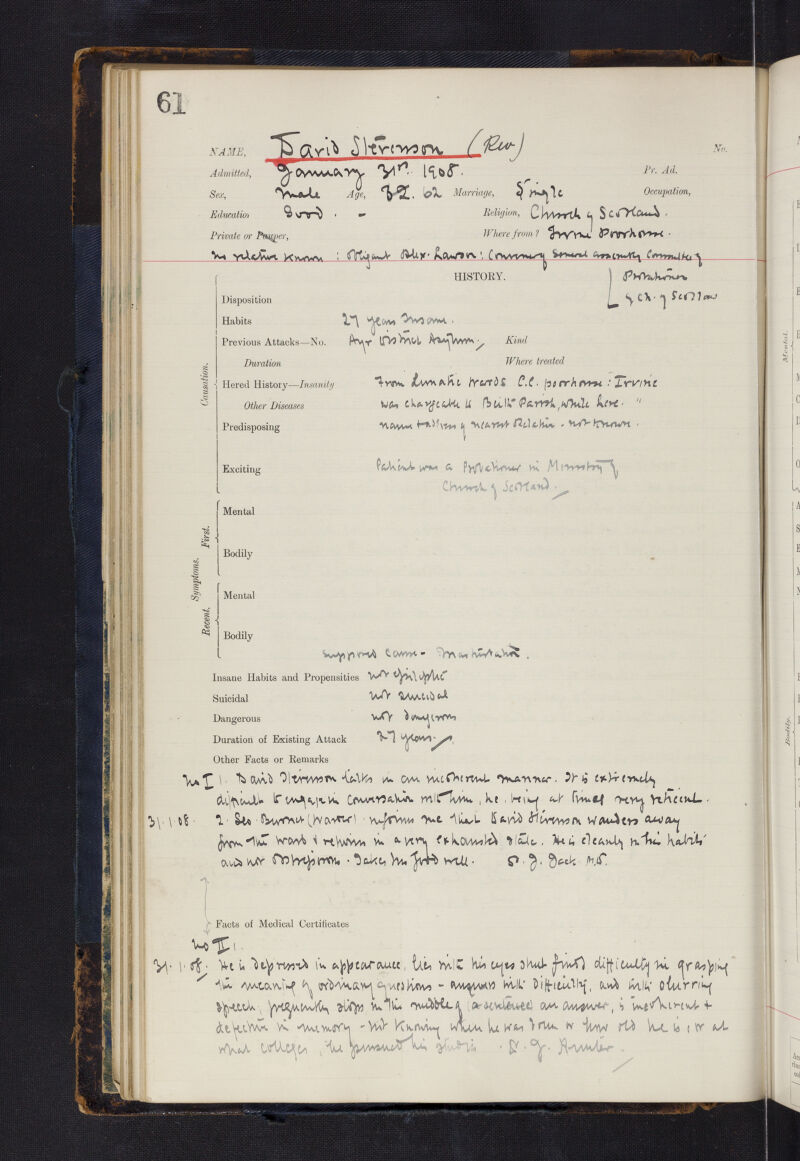 61
NAME, David Stevenson (Rev) No.
Admitted, January 31st. 1908. Pr. Ad.
Sex, Male Age, 62 Marriage, Single Occupation,
Education Good . - Religion, Church of Scotland.
Private or Pauper, Where from? Irvine Poorhouse.
No relative known : Obligant Alex. Lawson : Convener of General Assembly Committee of
HISTORY. Probationers
Disposition of Ch. of Scotland
Habits 27 years Insane.
Previous Attacks—No. Ayr District Asylum. Kind
Duration Where treated
Causation.
Hered History—Insanity From Lunatic Wards C.C. poorhouse : Irvine
Other Diseases was chargeable to Beith Parish, while here. "
Predisposing name & address of nearest Relative - not known.
Exciting Patient was a Probationer in Ministry of
Church of Scotland.
Symptoms.
First.
Mental
Bodily
Recent.
Mental
Bodily
Supposed Cause - Masturbation.
Insane Habits and Propensities not epileptic
Suicidal not suicidal
Dangerous not dangerous
Duration of Existing Attack 27 years.
Other Facts or Remarks
No I 1. David Stevenson talks in an incoherent manner. It is extremely
difficult to engage in conversation with him, he being at times very reticent.
31.1.08. 2. Geo Burnet (Warder) informs me that David Stevenson wanders away
from the ward & returns in a very exhausted state. He is cleanly in his habits
and not obstreperous. Takes his food well. J. Jack M.D.
Facts of Medical Certificates
No II 1.
31.1.08. He is depressed in appearance, lies with his eyes shut finds difficulty in grasping
the meaning of ordinary questions - answers with difficulty, and with slurring
speech, frequently stops in the middle of (a sentence) an answer, is incoherent &
defective in memory - not knowing when he was born or how old he is, or at
what colleges, he pursued his studies. J. Hunter.